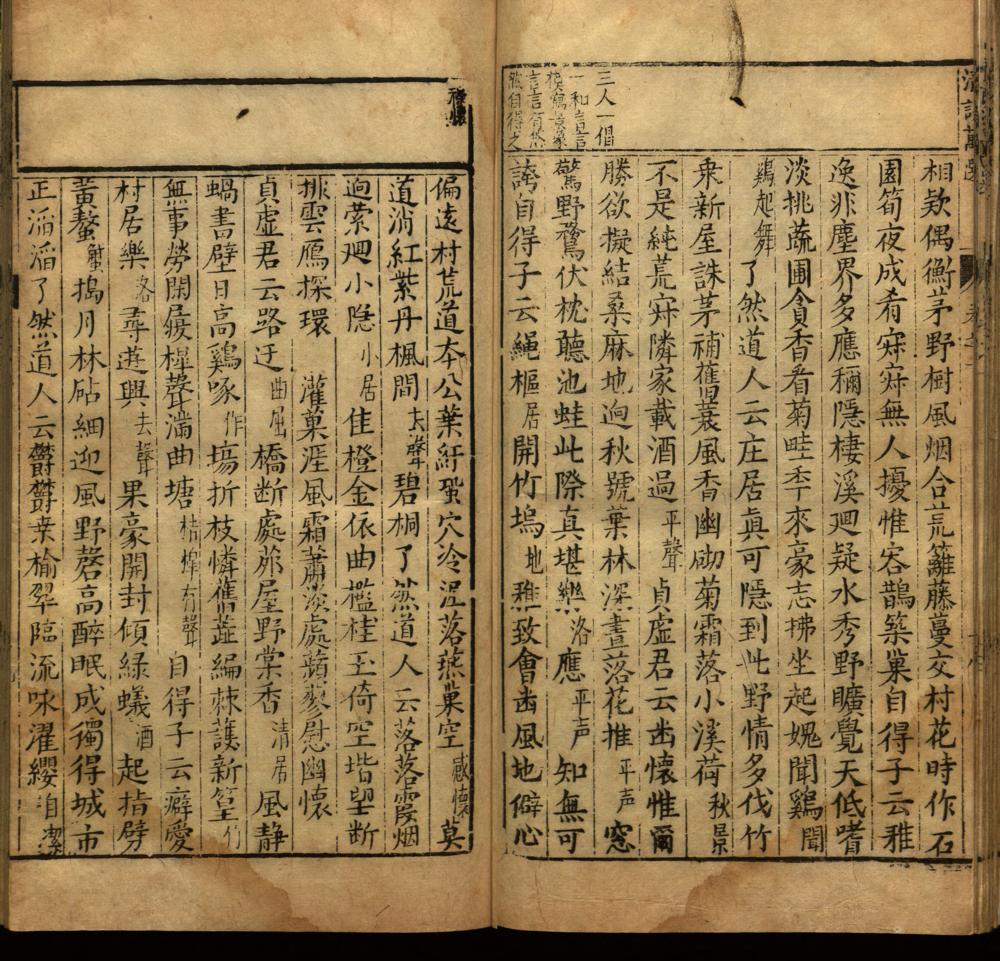 三人一倡
一和言言
模寫景象
言言有悠
然自得之
相欵偶衡茅野樹風烟合荒籬藤蔓交村花時作石
園筍夜成肴寂寂無人擾惟容鵲築巢自得子云雅
逸非塵界多應稱隱棲溪迴疑水秀野曠覺天低嗜
淡挑蔬圃貪香看菊畦季來豪志拂坐起媿聞鷄聞
鷄起舞了然道人云庄居真可隱到此野情多伐竹
乗新屋誅茅補舊蓑風香幽砌菊霜落小溪荷秋景
不是純荒寂隣家載酒過平聲貞虛君云出懷惟爾
勝欲擬結桑麻地迥秋號葉林深晝落花推平声窓
驚野鶩伏枕聽池蛙此際真堪樂洛應平声知無可
誇自得子云繩樞居開竹塢地雅致會幽風地僻心
禪懷
偏遠村荒道本公葉紆蛩穴冷泥落燕巢空感懷莫
道消紅紫丹楓間去聲碧桐了然道人云落落霞烟
逈縈廻小隐小居佳橙金依曲檻桂玉倚空堦望断
排雲鴈探環灌菓涯風霜蕭淡處蘋蓼慰幽懷
貞虛君云路迂曲屈橋断處茆屋野棠香清居風静
蝸書壁日高鷄啄作塲折枝憐舊蕋編棘護新篁竹
無事勞閑屐樨聲滿曲塘桔槹有聲自得子云癖愛
村居樂洛尋逰興去聲果豪開封傾緑蟻酒起指劈
黃螯蟹搗月林砧細迎風野磬高醉眠成獨得城市
正滔滔了然道人云欝欝桒榆翠臨流咏濯纓自潔